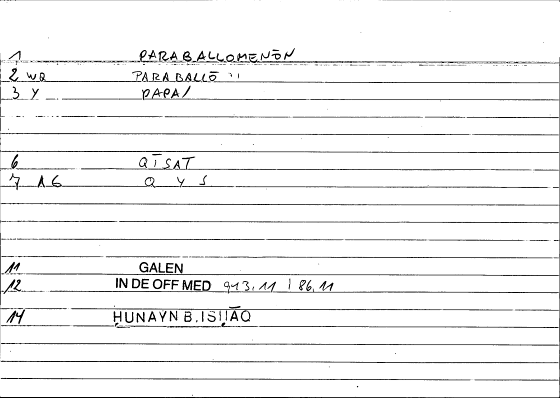 1 PARABALLOMENŌN
2 WQ PARABALLŌ
3 Y PAPA/
6 QĪSAT
7 AG Q Y S
11 GALEN
12 IN DE OFF MED 913,11 | 86,11
14 ḤUNAYN B.ISḤĀQ